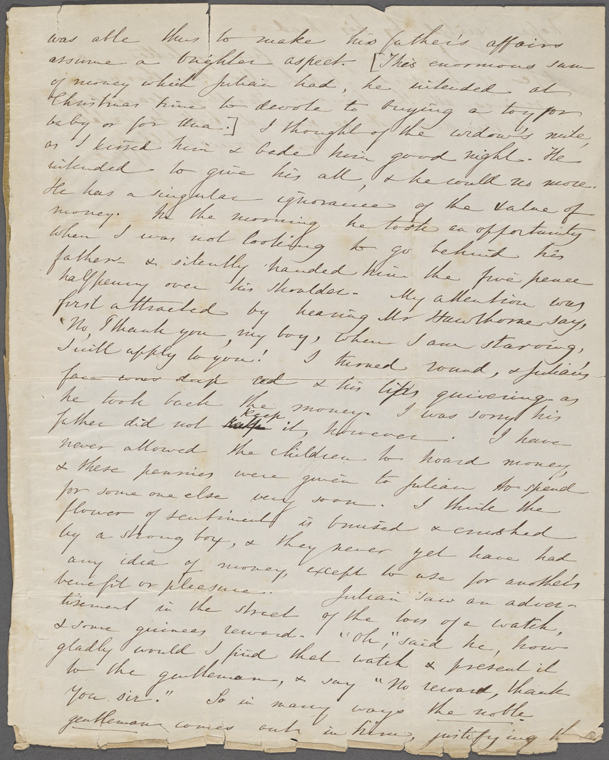 was able thus to make his father's affairs
assume a brighter aspect. [This enormous sum
of money which Julian had, he intended at
Christmas time to devote to buying a toy for
baby or for Una.] I thought of the widow's mite
as I kissed him & bade him good night. He
intended to give his all, & he could no more.
He has a singular ignorance of the value of
money. In the morning he took an opportunity
when I was not looking to go behind his
father & silently handed him the five pence
halfpenny over his shoulder. My attention was
first attracted by hearing Mr Hawthorne say,
"No, I thank you, my boy, when I am starving,
I will apply to you!" I turned round, & Julian's
face was deep red & his lips quivering as
he took back the money. I was sorry his
father did not keep it, however. I have
never allowed the children to hoard money,
& these pennies were given to Julian to spend
for some one else very soon. I think the
flower of sentiment is bruised & crushed
by a strong box, & they never yet have had
any idea of money, except to use for another's
benefit or pleasure. Julian saw an adver-
tisement in the street of the loss of a watch,
& some guineas reward. "Oh," said he, how
gladly would I find that watch & present it
to the gentleman, & say "No reward, thank
you sir." So in many ways the noble
gentleman comes out in him, justifying the